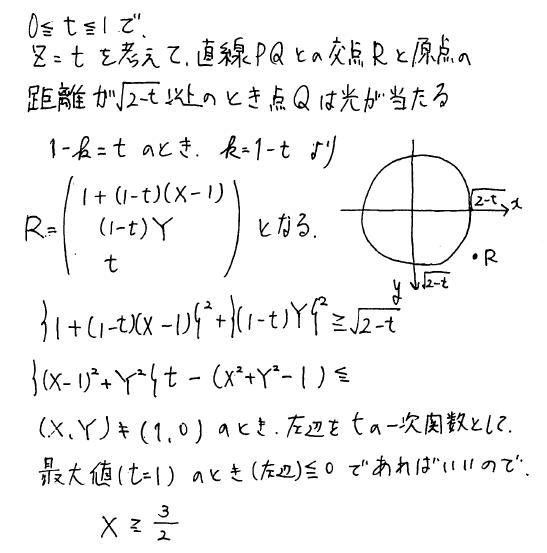 0≦t≦1で.
Z=tを考えて、直線PQとの交点Rと原点の
距離が√2-t以上のとき点Qは光が当たる
1-k=tのとき. k=1-tより
R=(1+(1-t)(X-1)
(1-t)Y
t) となる.
√2-t x
・R
y √2-t
{1+(1-t)(X-1)}²+{(1-t)Y}²≧√2-t
{(X-1)²+Y²}t-(X²+Y²-1)≦
(X,Y)≠(1,0)のとき.左辺をtの一次関数として.
最大値(t=1)のとき(左辺)≦0であればいいので.
X≧3/2